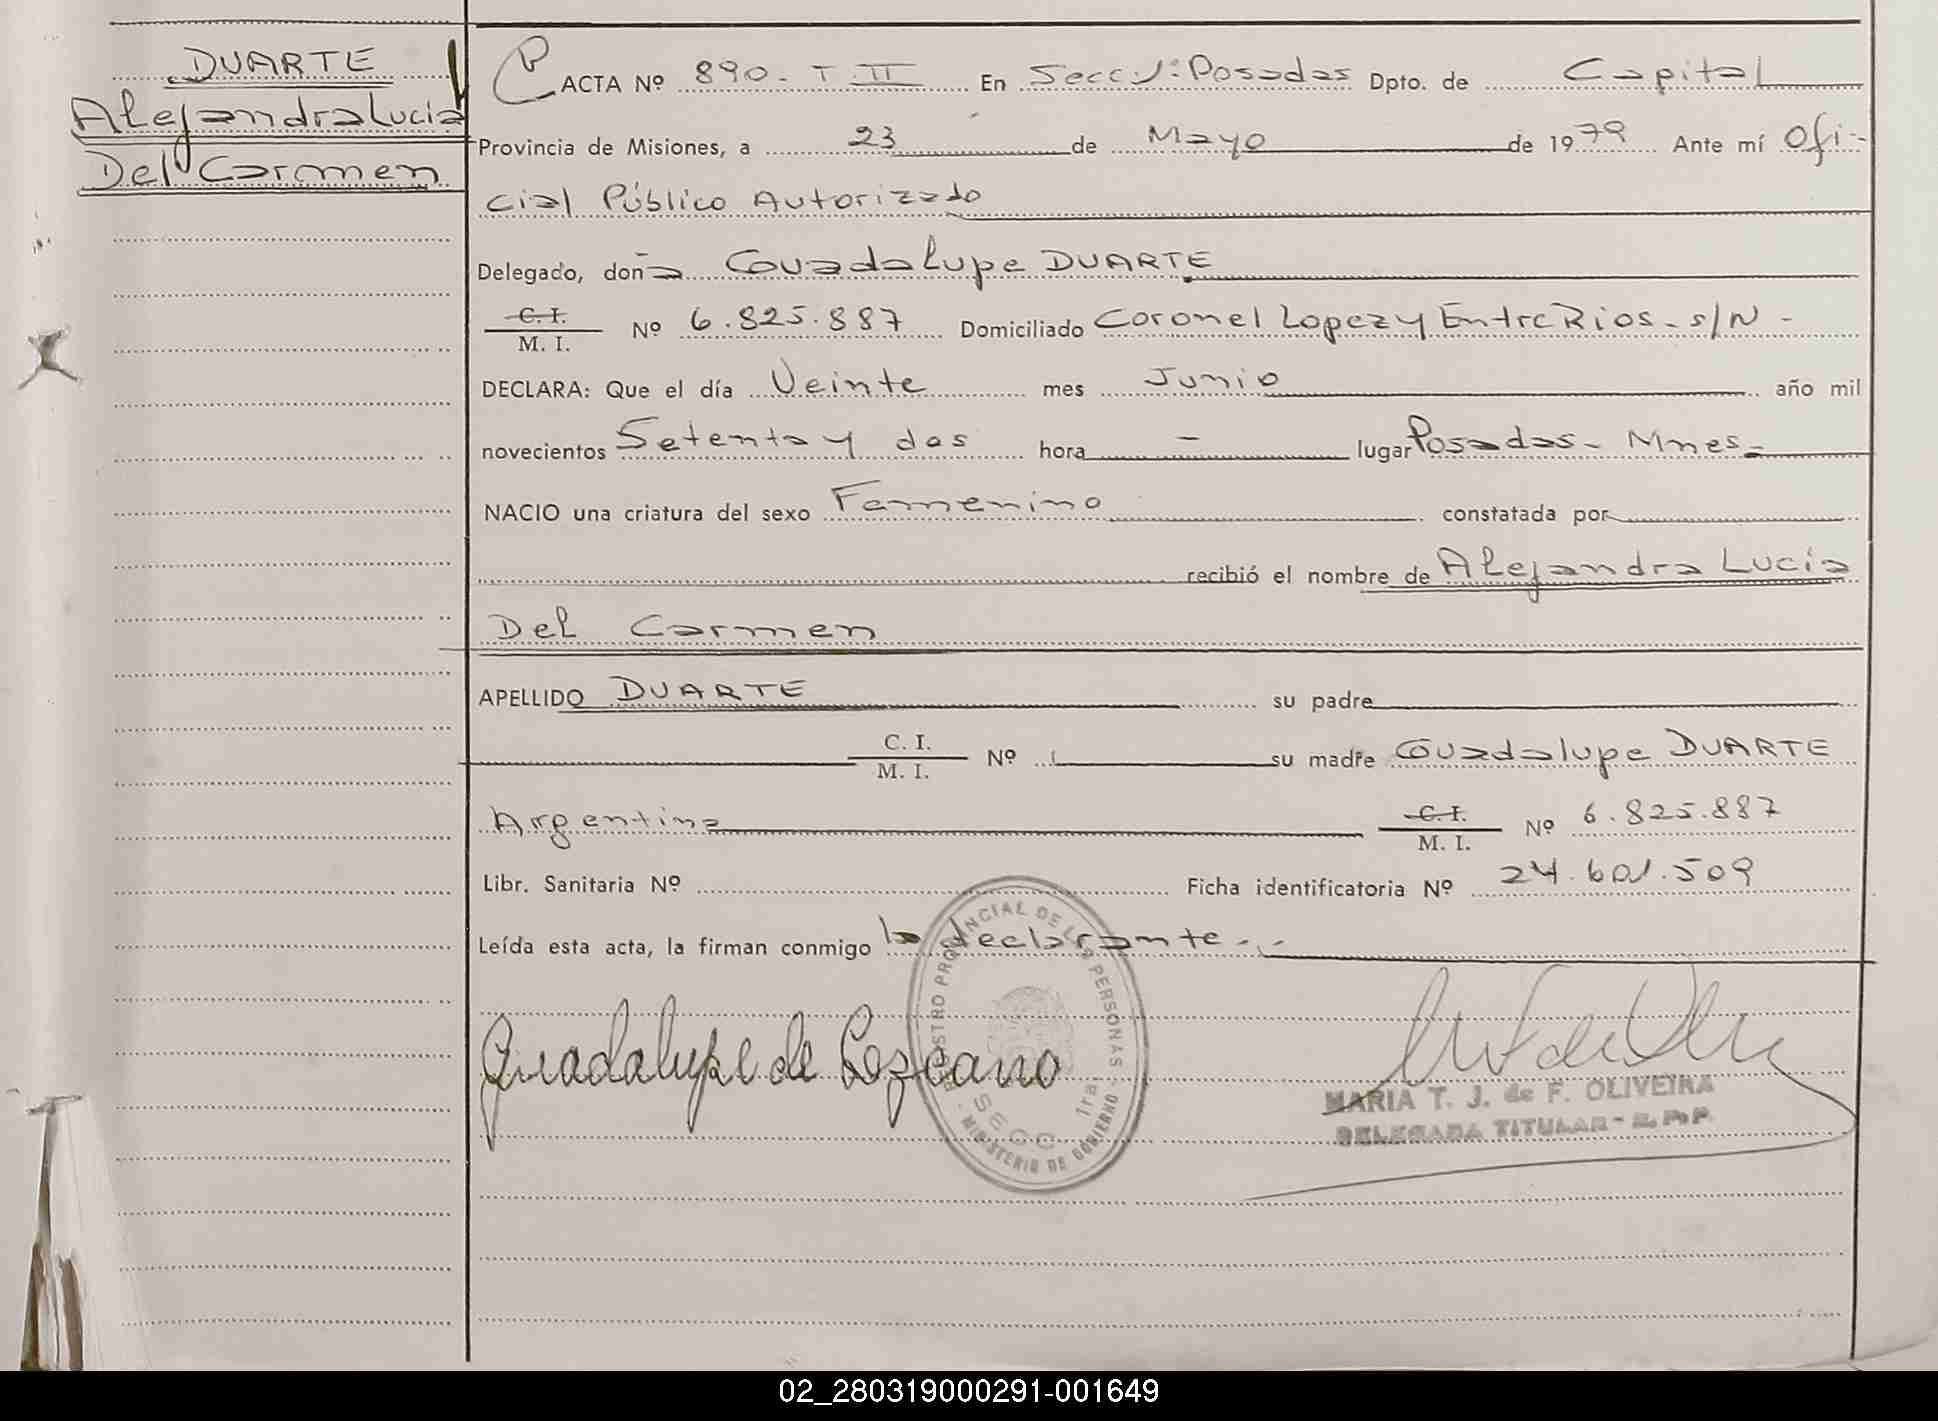 DUARTE
Alejandra Lucía
Del Carmen
ACTA Nº 890 - T II En Secc 1ª: Posadas Dpto. de Capital
Provincia de Misiones, a 23 de Mayo de 1979 Ante mí Ofi-
cial Público Autorizado
Delegado, doña Guadalupe DUARTE
C. I.
M. I. Nº 6.825.887 Domiciliado Coronel Lopez y Entre Rios - s/N -
DECLARA: Que el día Veinte mes Junio año mil
novecientos Setenta y dos hora - lugar Posadas - Mnes -
NACIO una criatura del sexo Femenino constatada por
recibió el nombre de Alejandra Lucía
Del Carmen
APELLIDO DUARTE su padre
C. I.
M. I. Nº su madre Guadalupe DUARTE
Argentina C. I.
M. I. Nº 6.825.887
Libr. Sanitaria Nº Ficha identificatoria Nº 24.601.509
Leída esta acta, la firman conmigo la declarante.-
REGISTRO PROVINCIAL DE LAS PERSONAS
SECC 1ra
MINISTERIO DE GOBIERNO
Guadalupe de Lezcano
MARIA T. J. de F. OLIVEIRA
DELEGADA TITULAR - R. P. P.
02_280319000291-001649